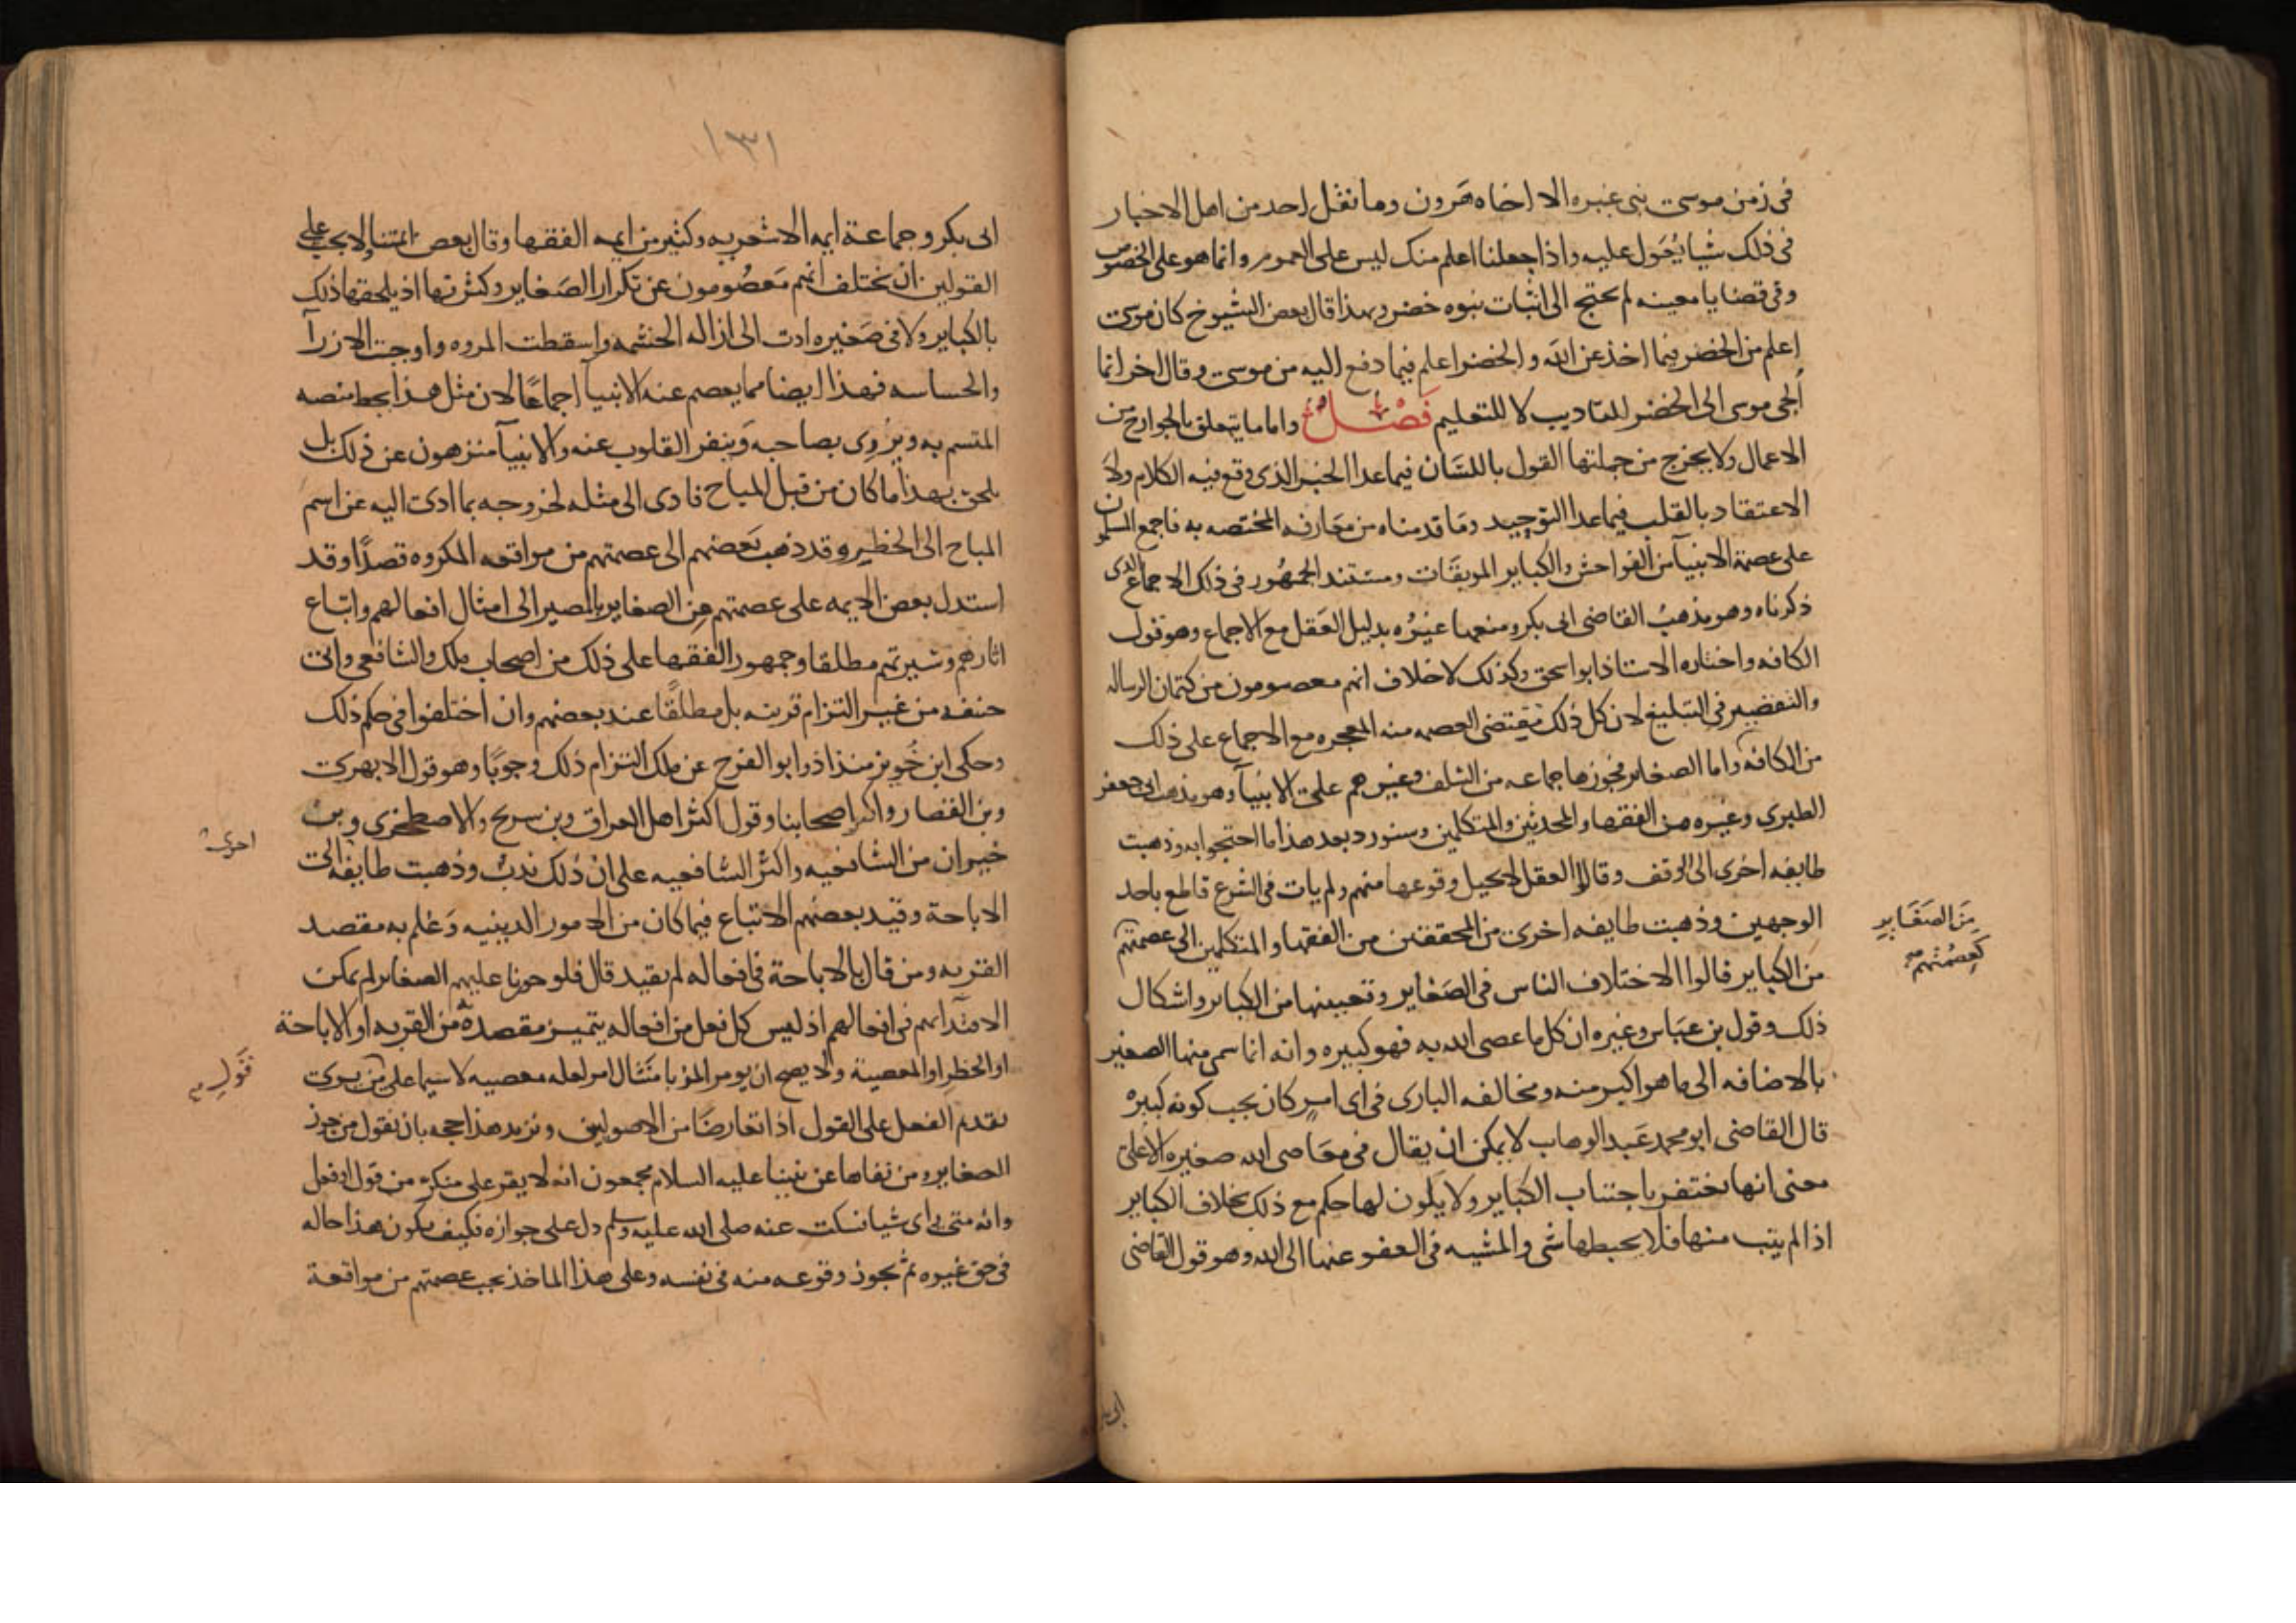 في زمن موسى نبي غيره الا اخاه هرون وما نقل احد من اهل الاخبار
في ذلك شيا يعول عليه واذا جعلنا اعلم منك ليس على العموم وانما هو على الخصوص
وفي قضايا معينه لم يحتج الى اثبات نبوه خضر وبهذا قال بعض الشيوخ كان موسى
اعلم من الخضر فيما اخذ عن الله والخضر اعلم فيما دفع اليه من موسى وقال اخر انما
الجى موسى الى الخضر للتاديب لا للتعليم فصل واما ما يتعلق بالجوارح من
الاعمال ولا يخرج من جملتها القول باللسان فيما عدا الخبر الذي وقع فيه الكلام ولا
الاعتقاد بالقلب فيما عدا التوحيد وما قدمناه من معارفه المختصه به فاجمع المسلمون
على عصمة الانبيآ من الفواحش والكباير الموبقات ومستند الجمهور في ذلك الاجماع الذى
ذكرناه وهو مذهب القاضى ابى بكر ومنعها غيره بدليل العقل مع الاجماع وهو قول
الكافه واختاره الاستاذ ابو اسحق وكذلك لا خلاف انهم معصومون من كتمان الرساله
والتقصير في التبليغ لان كل ذلك يقتضى العصمه منه المعجزه مع الاجماع على ذلك
من الكافه واما الصغاير فجوزها جماعه من السلف وغيرهم على الانبيآ وهو مذهب ابى جعفر
الطبرى وغيره من الفقها والمحدثين والمتكلمين وسنورد بعد هذا ما احتجوا به وذهبت
طايفه اخرى الى الوقف وقالوا العقل لا يحيل وقوعها منهم ولم يات في الشرع قاطع باحد
الوجهين وذهبت طايفه اخرى من المحققين من الفقها والمتكلمين الى عصمتهم
من الصغاير
كعصمتهم
من الكباير قالوا الاختلاف الناس في الصغاير وتعيينها من الكباير واشكال
ذلك وقول بن عباس وغيره ان كل ما عصى الله به فهو كبيره وانه انما سمى منها الصغير
بالاضافه الى ما هو اكبر منه ومخالفه البارى في اى امر كان يجب كونه كبيره
قال القاضى ابو محمد عبد الوهاب لا يمكن ان يقال في معاصى الله صغيره الا على
معنى انها تغتفر باجتناب الكباير ولا يكون لها حكم مع ذلك بخلاف الكباير
اذا لم يتب منها فلا يحبطها شى والمشيه في العفو عنها الى الله وهو قول القاضى
١٣١
ابى بكر وجماعة ايمه الاشعريه وكثير من ايمه الفقها وقال بعض ائمتنا لا يجب على
القولين ان تختلف انهم معصومون عن تكرار الصغاير وكثرتها اذ يلحقها ذلك
بالكباير ولا في صغيره ادت الى ازاله الحشمه واسقطت المروه واوجبت الازرآ
والحساسه فهذا ايضا مما يعصم عنه الانبيآ اجماعًا لان مثل هذا يحط منصبه
المتسم به ويزرى بصاحبه وينفر القلوب عنه والانبيآ منزهون عن ذلك بل
يلحق بهذا ما كان من قبل المباح فادى الى مثله لخروجه بما ادى اليه عن اسم
المباح الى الحظر وقد ذهب بعضهم الى عصمتهم من مواقعه المكروه قصدًا وقد
استدل بعض الايمه على عصمتهم من الصغاير بالمصير الى امتثال افعالهم واتباع
اثارهم وسيرتهم مطلقا وجمهور الفقها على ذلك من اصحاب ملك والشافعى وابى
حنيفه من غير التزام قرينه بل مطلقًا عند بعضهم وان اختلفوا في حكم ذلك
وحكى ابن خويز منذاذ وابو الفرج عن ملك التزام ذلك وجوبًا وهو قول الابهرى
وبن القصار واكثر اصحابنا وقول اكثر اهل العراق وبن سريج والاصطخرى وبن
خيران من الشافعيه واكثر الشافعيه على ان ذلك ندب وذهبت طايفه الى
الاباحة وقيد بعضهم الاتباع فيما كان من الامور الدينيه وعلم به مقصد
القربه ومن قال بالاباحة في افعاله لم يقيد قال فلو جوزنا عليهم الصغاير لم يمكن
الاقتدا بهم في افعالهم اذ ليس كل فعل من افعاله يتميز مقصده من القربه او الاباحة
او الحظر او المعصية ولا يصح ان يومر المر بامتثال امر لعله معصيه لاسيما على من يرى
تقديم الفعل على القول اذا تعارضا من الاصوليين ونزيد هذا حجه بان نقول من جوز
الصغاير ومن نفاها عن نبينا عليه السلام مجمعون انه لا يقر على منكر من قول او فعل
وانه متى راى شيا فسكت عنه صلى الله عليه وسلم دل على جوازه فكيف يكون هذا حاله
في حق غيره ثم يجوز وقوعه منه في نفسه وعلى هذا الماخذ يجب عصمتهم من مواقعة